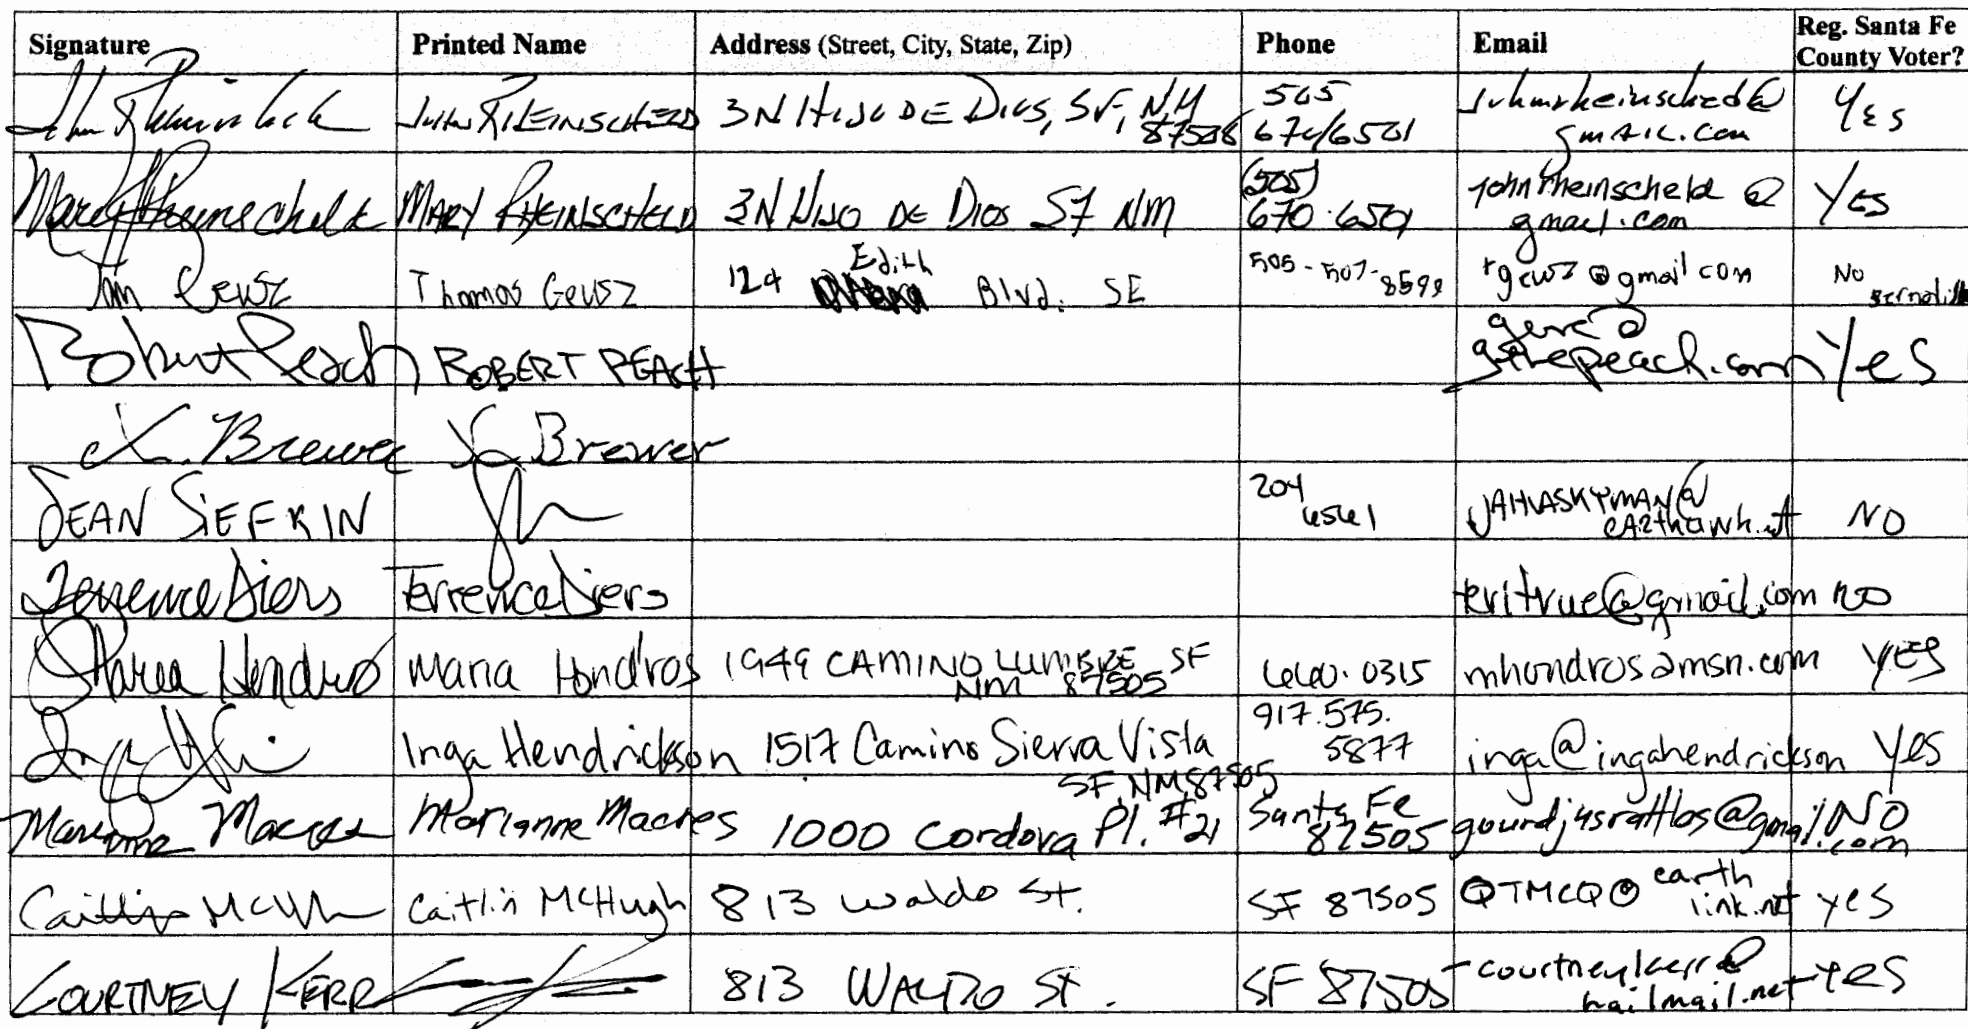 Signature Printed Name Address (Street, City, State, Zip) Phone Email Reg. Santa Fe
County Voter?
John Rheinscheld John RHEINSCHELD 3 N HIJO DE DIOS, SF, NM 505 @ YES
87508 670/6501 gmAIL.com
Mary Rheinscheld MARY RHEINSCHELD 3N HIJO DE DIOS SF NM (505) johnrheinscheld @ YES
670·6501 gmail.com
Tom Geusz Thomas Geusz 124 Edith Blvd. SE 505-507-8599 tgeusz@gmail com No
Robert Peach ROBERT PEACH gene@ Yes
gthepeach.com
L. Brewer Brewer
SEAN SIEFKIN 204 JAHVASKYMAN@ NO
6561
Terrence Diers Terrence Diers teritrue@gmail.com no
Maria Hondros Maria Hondros 1949 CAMINO LUMBRE SF 660·0315 mhondros@msn.com YES
NM 87505
Inga Hendrickson 1517 Camino Sierra Vista 917.575. inga@ingahendrickson Yes
SF, NM 87505 5877
Marianne Macres Marianne Macres 1000 Cordova Pl. #21 Santa Fe @gmail NO
87505 .com
Caitlin McHugh Caitlin McHugh 813 Waldo St. SF 87505 QTMCQ@ earth yes
link.net
COURTNEY KERR 813 WALDO St. SF 87505 courtneykerr@ Yes
hailmail.net